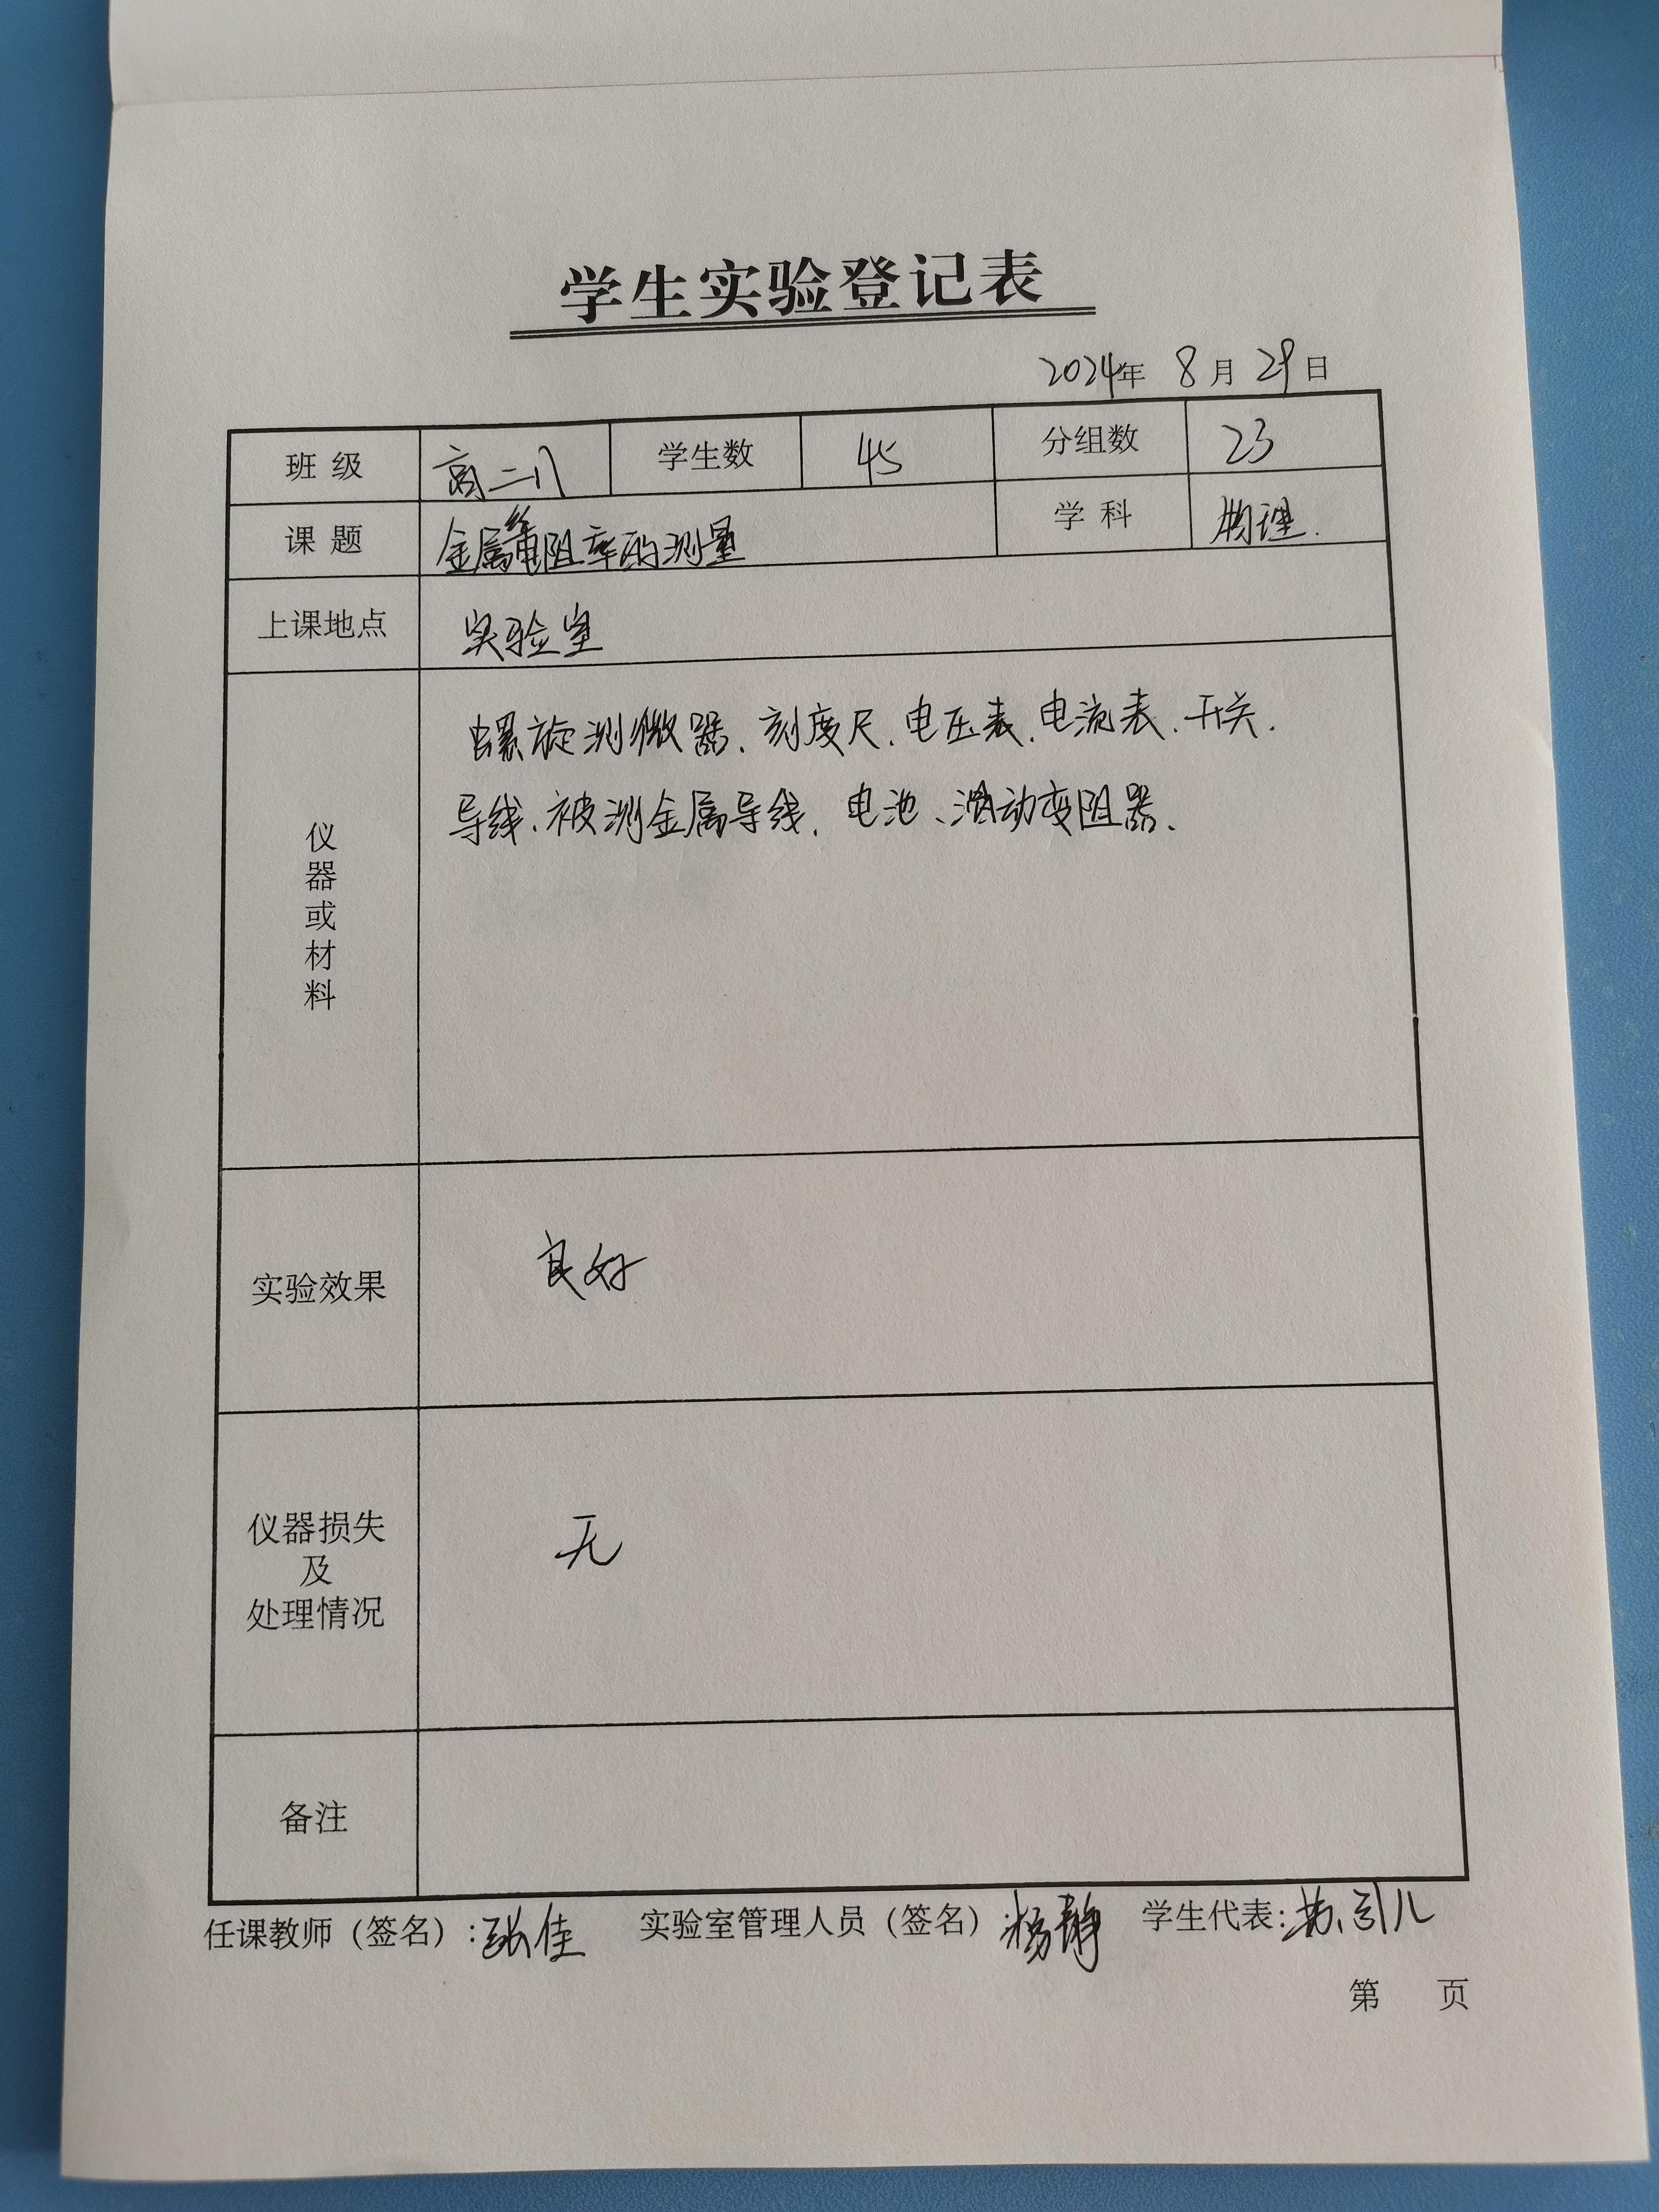 学生实验登记表
2024年 8月 29日
班级 高二八 学生数 45 分组数 23
课题 金属丝电阻率的测量 学科 物理.
上课地点 实验室
仪器或材料
螺旋测微器、刻度尺、电压表、电流表、开关、
导线、被测金属导线、电池、滑动变阻器、
实验效果 良好
仪器损失
及
处理情况
无
备注
任课教师（签名）：张佳 实验室管理人员（签名）：杨静 学生代表：苏引儿
第 页